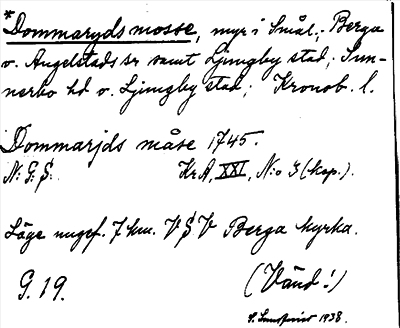 *Dommaryds mosse, myr i Smål.; Berga
o. Angelstads sr samt Ljungby stad; Sun-
nerbo hd o. Ljungby stad; Kronob. l.
Dommarjds måse 1745.
N: G: S. KrA, XXI, N:o 3 (kop.).
Läge ungef. 7 km. VSV Berga kyrka.
G. 19. (Vänd!)
1938.